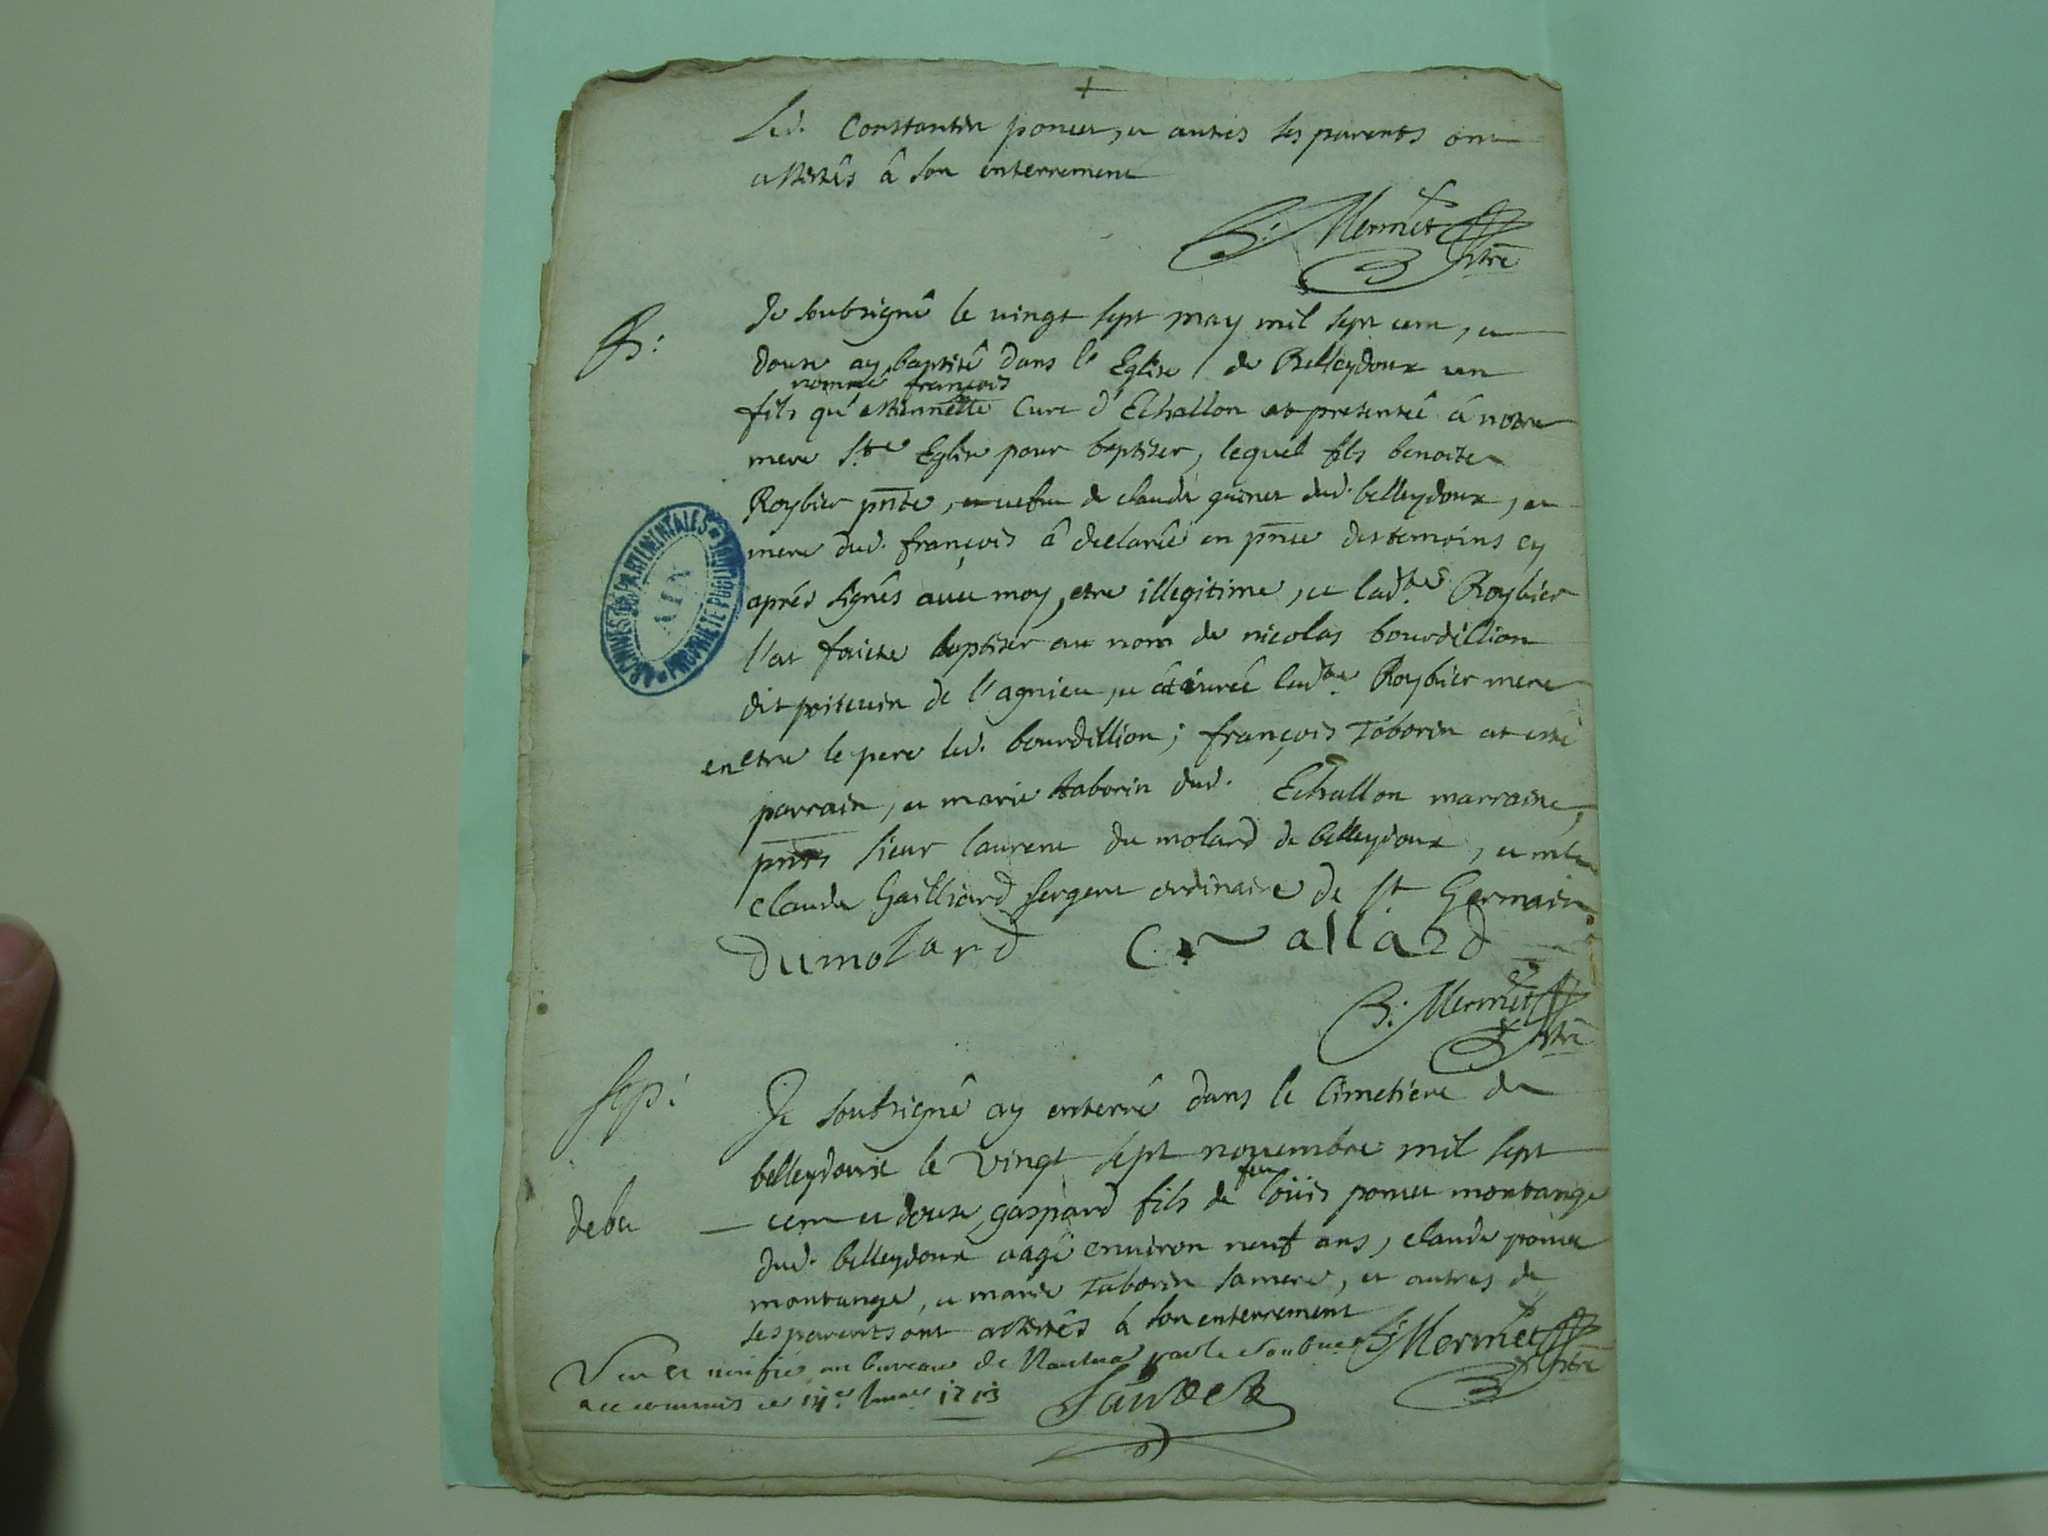 +
Led. Constantin poncet, et autres ses parents ont
assistés â son enterrement
B: Mermet
ptre
B:
Je soubsigné le vingt sept may mil sept cent, et
douze ay baptisé dans l'Eglise de Belleydoux un
nommé françois
fils qu'estiennette Cure d'Echallon at presenteé â notre
mere S.te Eglise pour baptiser, lequel fils benoite
Roybier pnte, de claude dud. belleydoux, et
mere dud. françois â declarée en pnce des temoins cy
aprés signés avec moy, etre illegitime, et lad.te Roybier
l'at faicte baptiser au nom de nicolas bourdillion
dit de l'agnieu, et â jurée lad.te Roybier mere
en etre le pere led. bourdillion; françois Taborin at esté
parrain, et marie taborin dud. Echallon marraine,
pnts sieur laurent du molard de belleydoux, et mtre
claude Gailliard sergent ordinaire de st Germain.
dumolard
B: Mermet
ptre
Sep:
Je soubsigné ay enterré dans le Cimetiere de
belleydoux le vingt sept novembre mil sept
feu
deba — cent et douze gaspard fils de loüis poncet montange
dud. belleydoux aagé environ neuf ans, claude poncet
montange, et marie Taborin sa mere, et autres de
ses parents ont assistés â son enterrement
B: Mermet
ptre
Veu et verifié au bureau de Nantua par le soubsigné
a ce commis ce 14e 1713
ARCHIVES DÉPARTEMENTALES
AIN
PROPRIÉTÉ PUBLIQUE